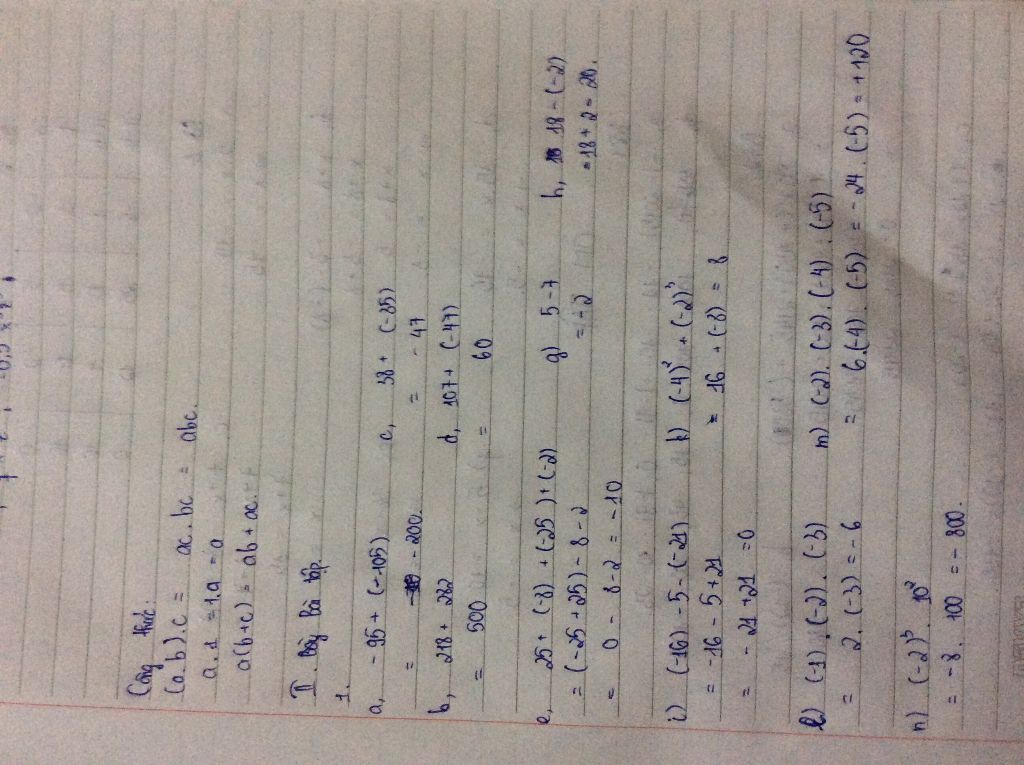 Công thức.
(a.b).c = ac.bc = abc.
a.1 = 1.a = a
a(b+c) = ab + ac.
II. Bài tập
1.
a, -95 + (-105) c, 38 + (-85)
= -200. = -47
b, 218 + 282 d, 107 + (-47)
= 500 = 60
e, 25 + (-8) + (-25) + (-2) g) 5-7 h, 18 - (-2)
= (-25+25) - 8 - 2 = -2 = 18 + 2 = 20.
= 0 - 8 - 2 = -10
i) (-16) - 5 - (-21) k) (-4)² + (-2)³
= -16 - 5 + 21 = 16 + (-8) = 8
= -21 + 21 = 0
l) (-1).(-2).(-3) m) (-2).(-3).(-4).(-5)
= 2.(-3) = -6 = 6.(-4).(-5) = -24.(-5) = +120
n) (-2)³.10²
= -8.100 = -800.